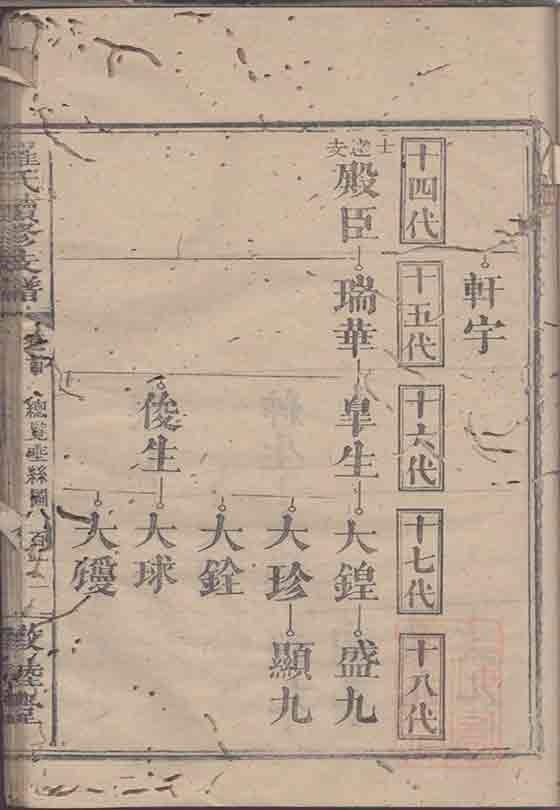 軒宇
十四代
十五代
十六代
十七代
十八代
殿臣
瑞華
皐生
大鍠
盛九
大珍
顯九
大銓
俊生
大球
大
羅氏續修支譜
卷首
總覽垂絲圖
敦睦堂